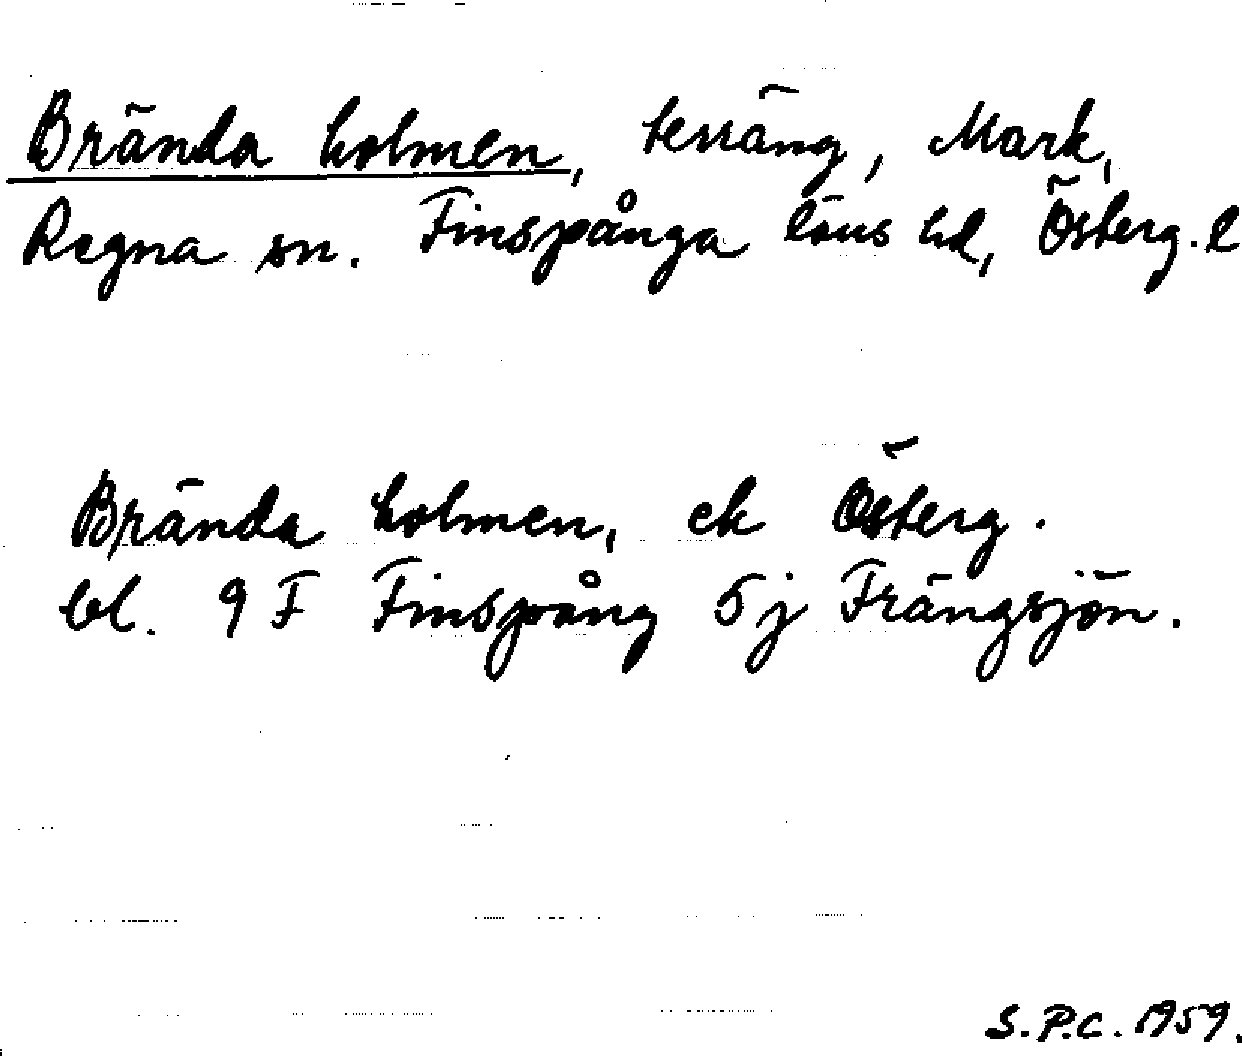 Brända holmen, terräng, Mark,
Regna sn. Finspånga läns hd, Österg. l
Brända holmen, ek Österg.
bl. 9 F Finspång 5j Frängsjön.
S.P.C. 1959.